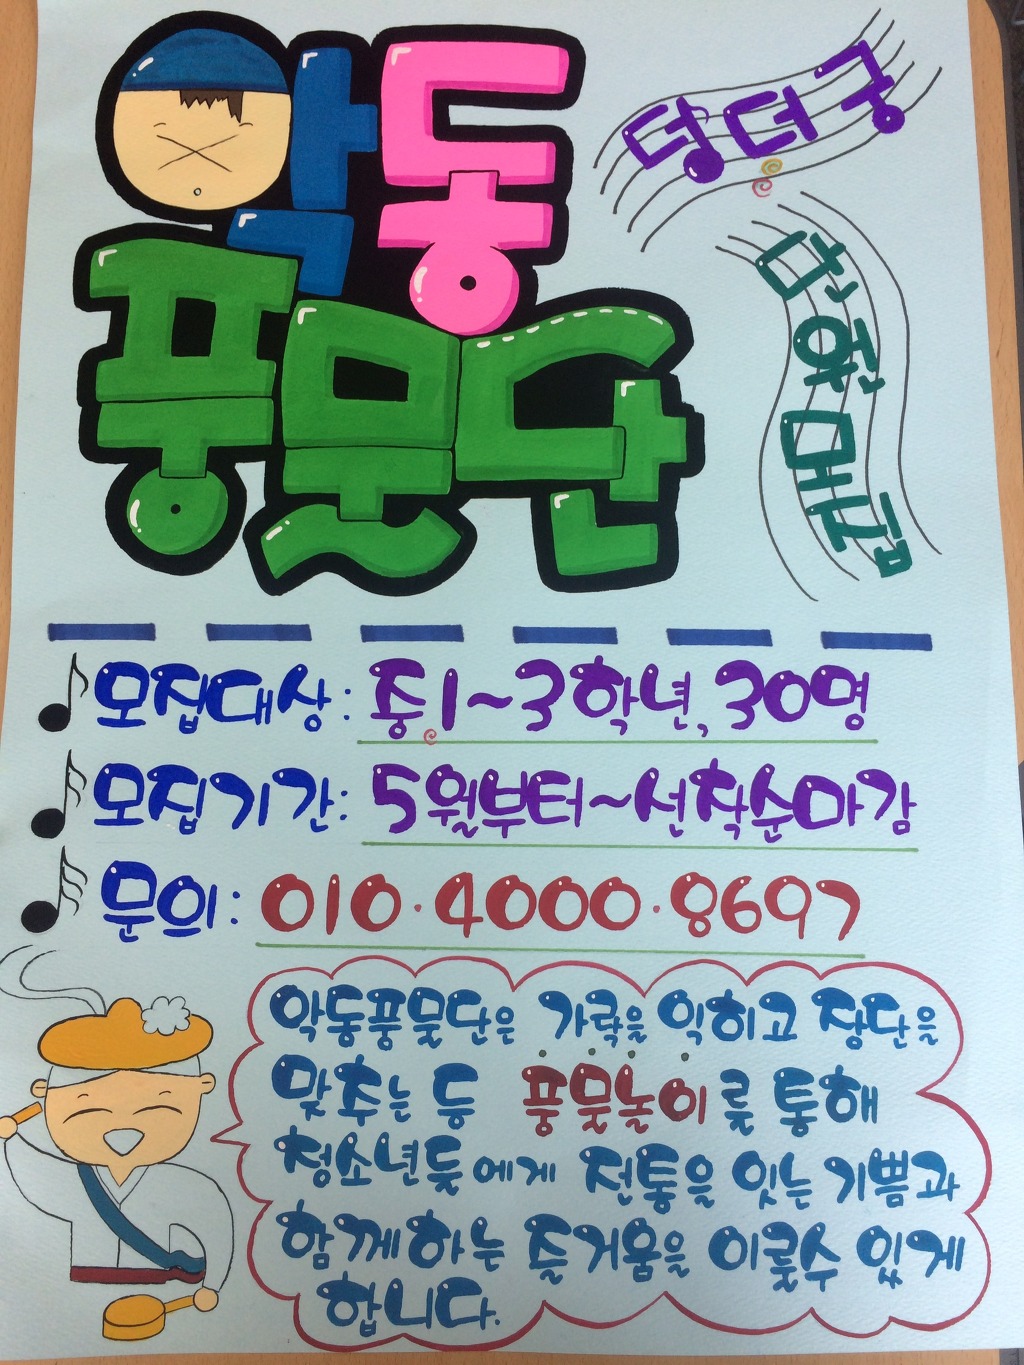 악동
풍물단
덩더쿵
얼쑤
모집대상: 중1~3학년, 30명
모집기간: 5월부터~선착순마감
문의: 010·4000·8697
악동풍물단은 가락을 익히고 장단을
맞추는 등 풍물놀이를 통해
청소년들에게 전통을 잇는 기쁨과
함께하는 즐거움을 이룰수 있게
합니다.